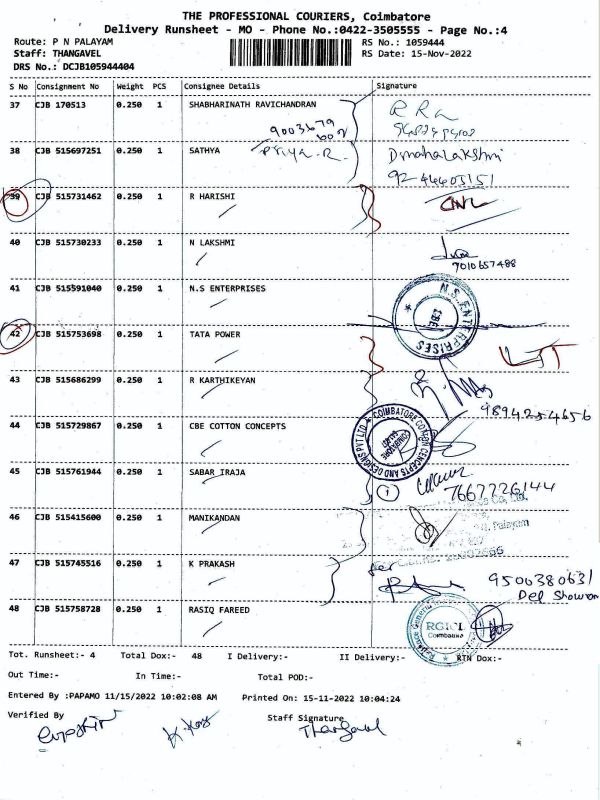 THE PROFESSIONAL COURIERS, Coimbatore
Delivery Runsheet - MO - Phone No.:0422-3505555 - Page No.:4
Route: P N PALAYAM RS No.: 1059444
Staff: THANGAVEL RS Date: 15-Nov-2022
DRS No.: DCJB105944404
S No Consignment No Weight PCS Consignee Details Signature
37 CJB 170513 0.250 1 SHABHARINATH RAVICHANDRAN
38 CJB 515697251 0.250 1 SATHYA Priya.R. Dmahalakshmi
39 CJB 515731462 0.250 1 R HARISHI
40 CJB 515730233 0.250 1 N LAKSHMI
7010657488
41 CJB 515591040 0.250 1 N.S ENTERPRISES
N.S. ENTERPRISES
CBE
42 CJB 515753698 0.250 1 TATA POWER
43 CJB 515686299 0.250 1 R KARTHIKEYAN
9894254656
44 CJB 515729867 0.250 1 CBE COTTON CONCEPTS
COIMBATORE COTTON CONCEPTS AND DESIGNS PVT LTD
45 CJB 515761944 0.250 1 SABAR IRAJA
7667726144
46 CJB 515415600 0.250 1 MANIKANDAN
Palayam
47 CJB 515745516 0.250 1 K PRAKASH
9500380631
48 CJB 515758728 0.250 1 RASIQ FAREED
RGICL
Coimbatore
Tot. Runsheet:- 4 Total Dox:- 48 I Delivery:- II Delivery:- RTN Dox:-
Out Time:- In Time:- Total POD:-
Entered By :PAPAMO 11/15/2022 10:02:08 AM Printed On: 15-11-2022 10:04:24
Verified By Staff Signature
Thangavel